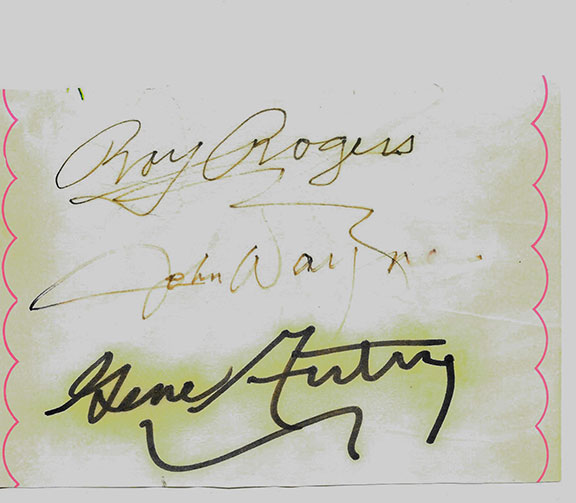 Roy Rogers
John Wayne
Gene Autry